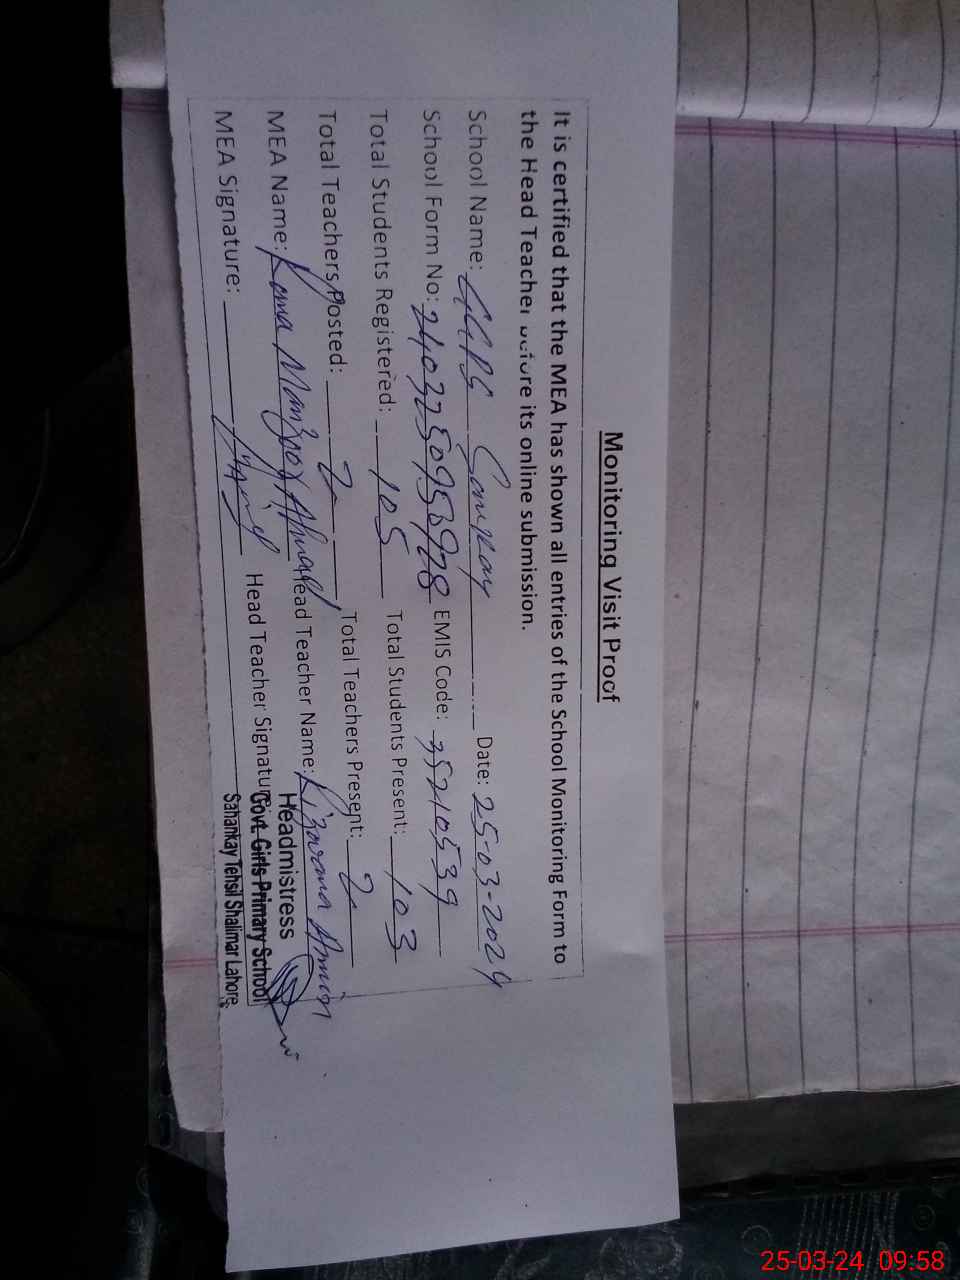 Monitoring Visit Proof
It is certified that the MEA has shown all entries of the School Monitoring Form to
the Head Teacher before its online submission.
School Name: GGPS Sankay Date: 25-03-2024
School Form No: 240325095828 EMIS Code: 35210539
Total Students Registered: 105 Total Students Present: 103
Total Teachers Posted: 2 Total Teachers Present: 2
MEA Name: Rana Manzoor Ahmad Head Teacher Name: Rizwana Amin
MEA Signature: Head Teacher Signatu
Headmistress
Govt. Girls Primary School
Sahankay Tehsil Shalimar Lahore.
25-03-24 09:58